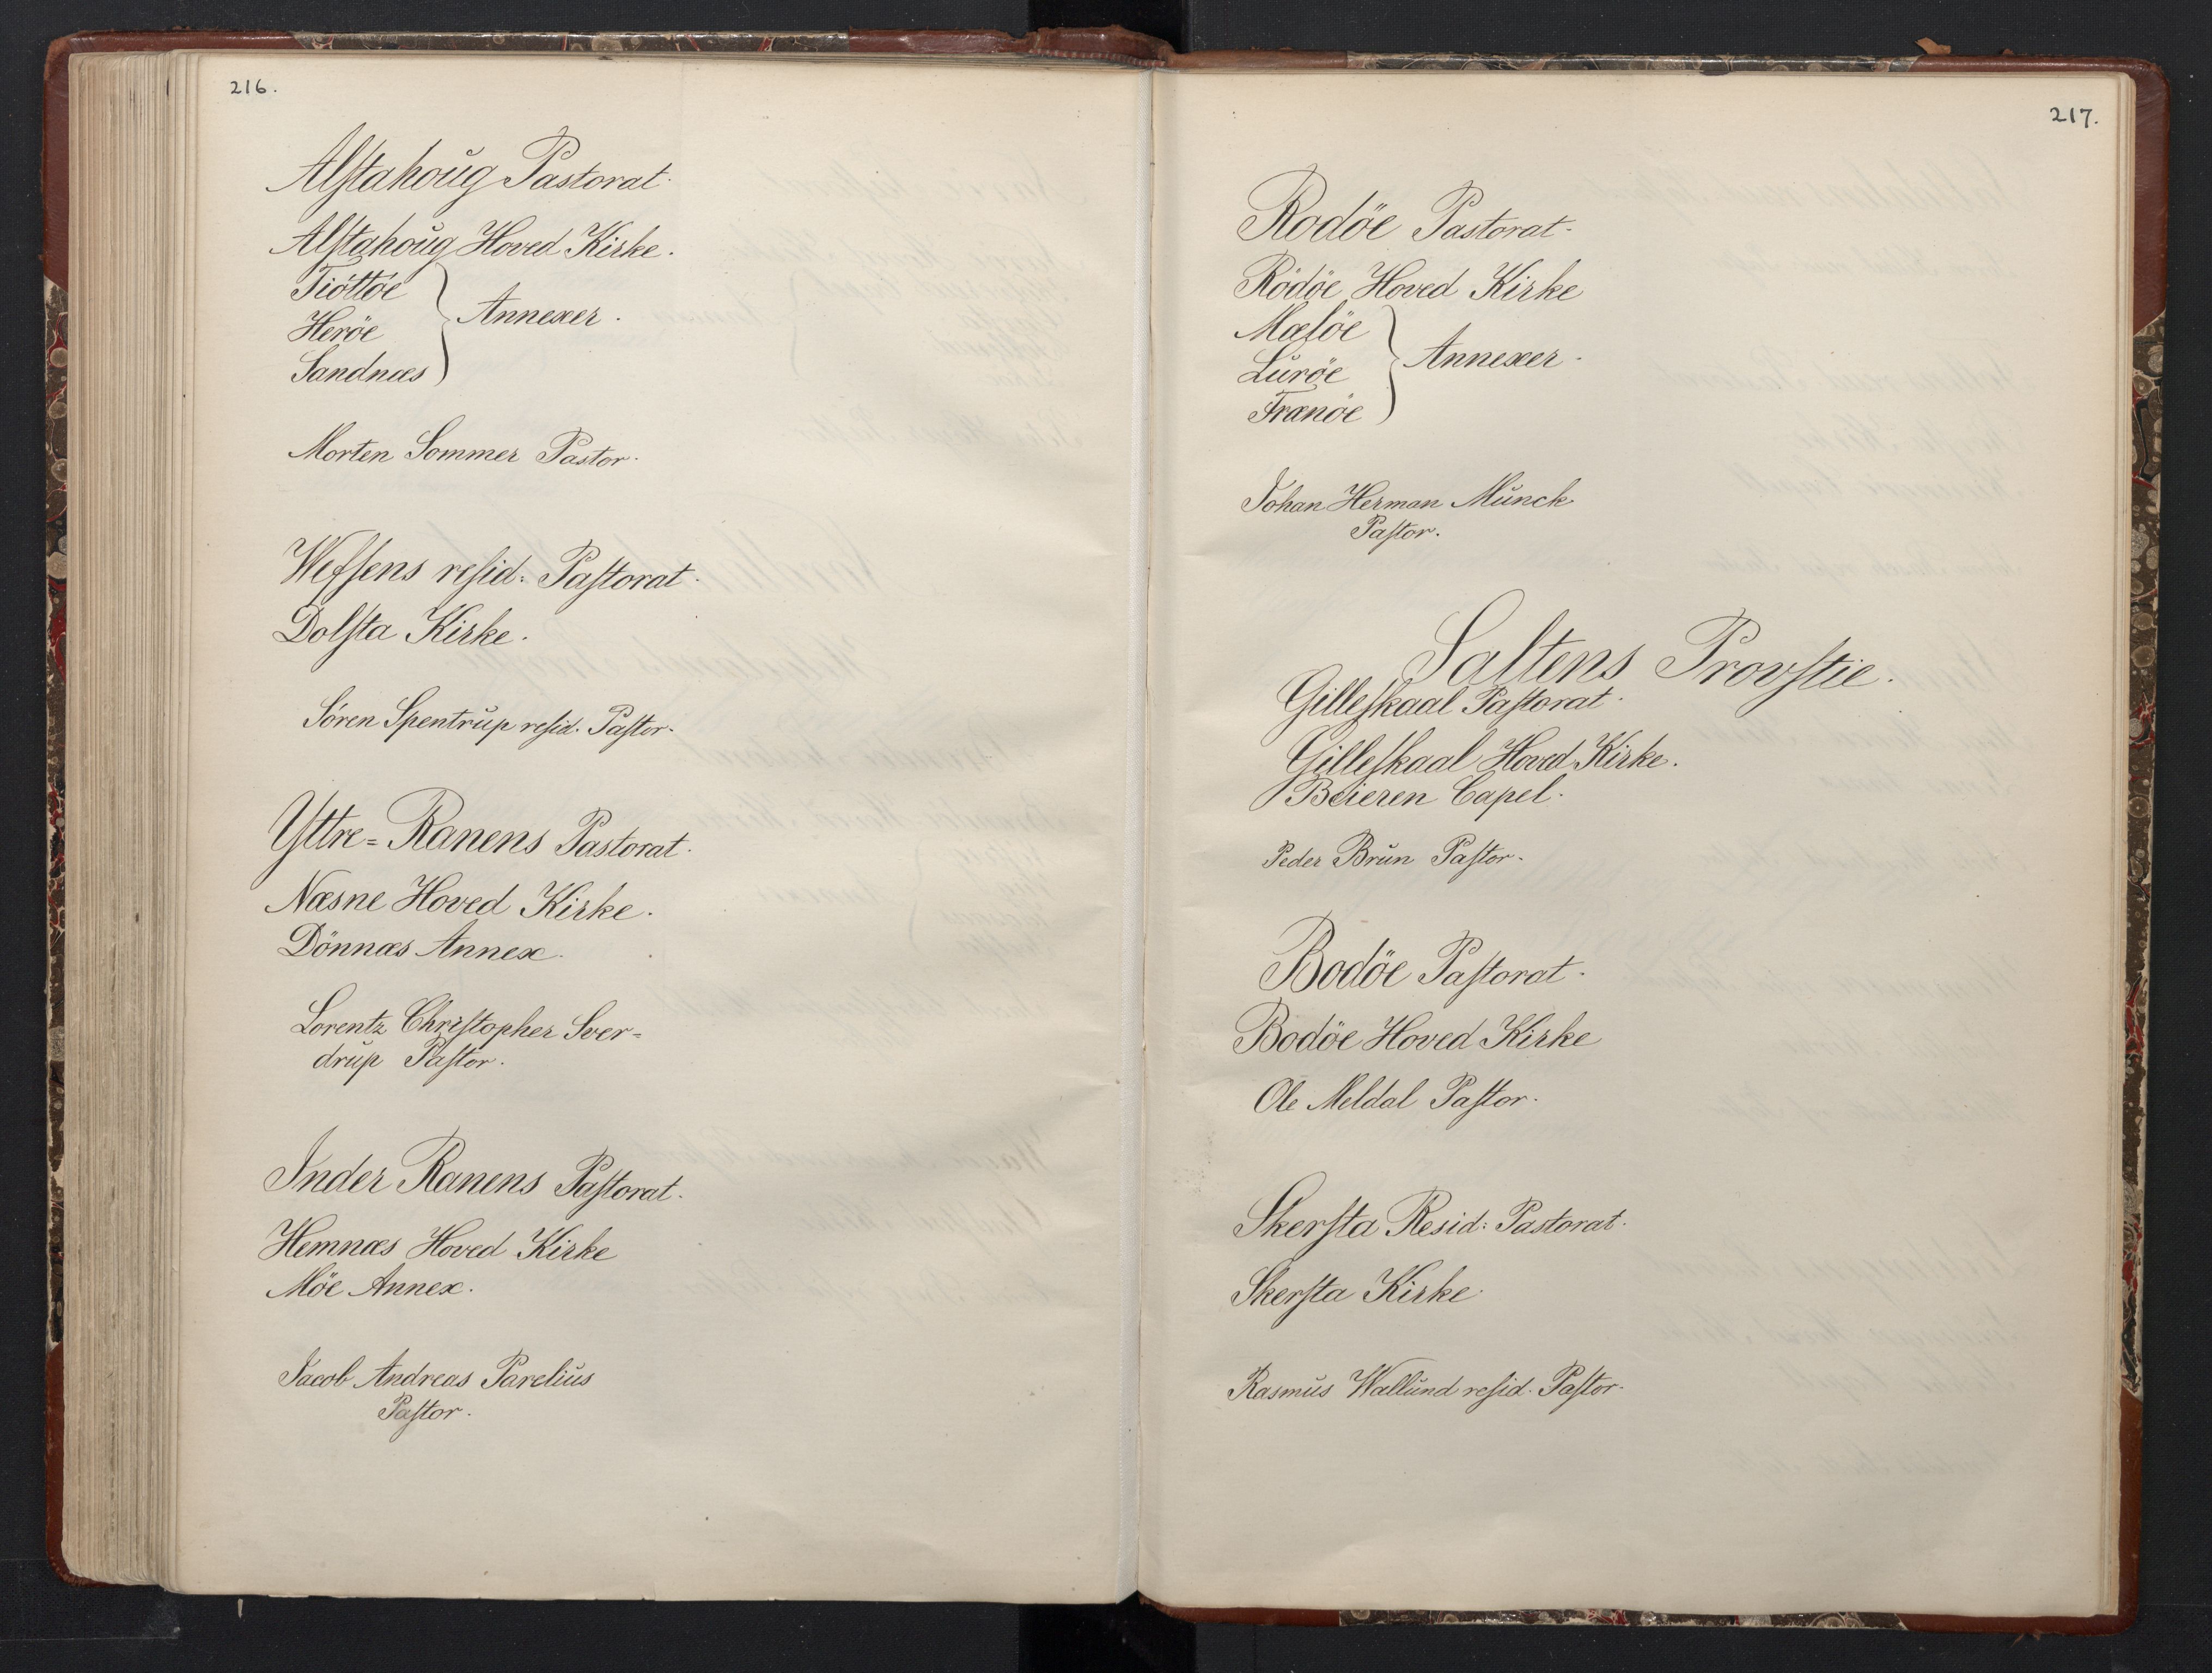 216.
Alstahoug Pastorat.
Alstahoug Hoved Kirke.
Tiöttöe
Heröe
Annexer.
Sandnæs
Morten Sommer Pastor.
Wefsens resid: Pastorat.
Dolsta Kirke.
Sören Spentrup resid. Pastor.
Yttre=Ranens Pastorat.
Næsne Hoved Kirke.
Dönnæs Annex.
Lorentz Christopher Sver=
drup Pastor.
Inder Ranens Pastorat.
Hemnæs Hoved Kirke
Möe Annex.
Jacob Andreas Parelius
Pastor.
217.
Rodöe Pastorat.
Rödöe Hoved Kirke
Mæløe
Luröe
Annexer.
Trænöe
Johan Herman Munck
Pastor.
Saltens Provstie.
Gilleskaal Pastorat.
Gilleskaal Hoved Kirke.
Beieren Capel.
Peder Brun Pastor.
Bodöe Pastorat.
Bodöe Hoved Kirke
Ole Meldal Pastor.
Skersta Resid: Pastorat.
Skersta Kirke.
Rasmus Wallund resid. Pastor.